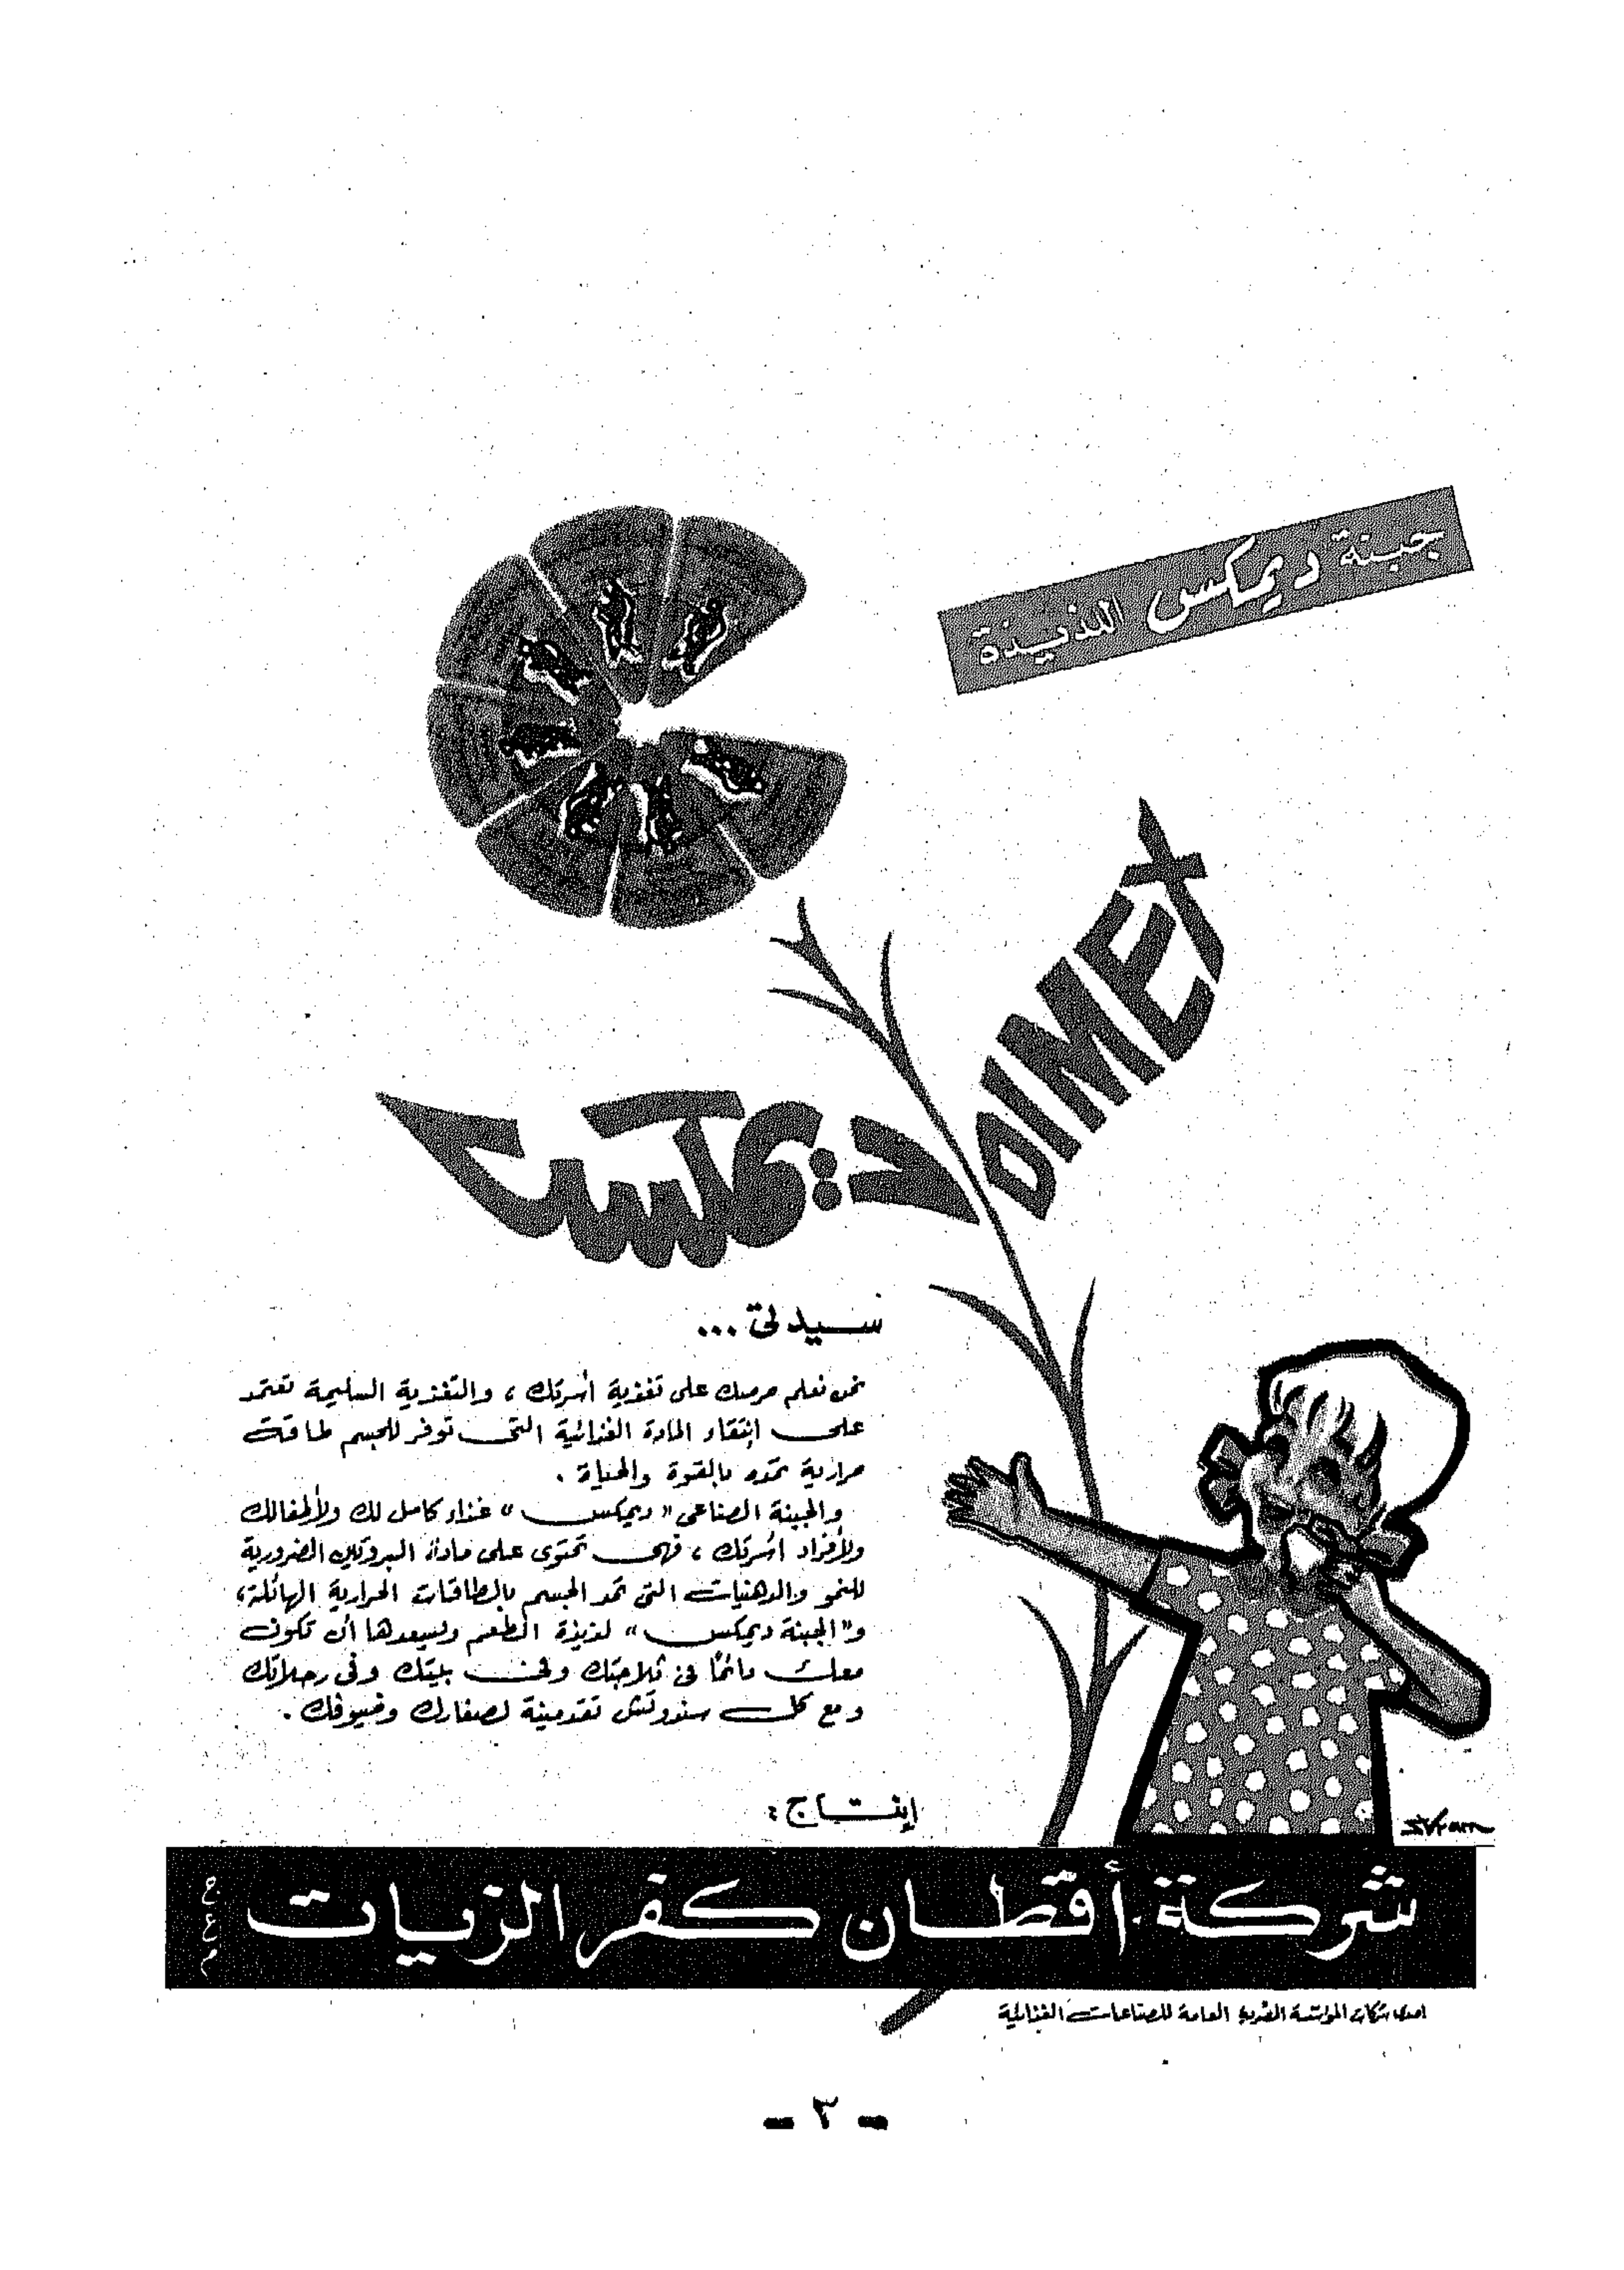 جبنة ديمكس اللذيذة
DIMEX
ديمكس
سيدتى ...
نحن نعلم حرصك على تغذية أسرتك ، والتغذية السليمة تعتمد
على إنتقاء المادة الغذائية التى توفر للجسم طاقة
حرارية تمده بالقوة والحياة .
والجبنة الصناعى « ديمكس » غذاء كامل لك ولأطفالك
ولأفراد أسرتك ، فهى تحتوى على مادة البروتين الضرورية
للنمو والدهنيات التى تمد الجسم بالطاقات الحرارية الهائلة ،
و « الجبنة ديمكس » لذيذة الطعم ويسعدها أن تكون
معك دائماً فى ثلاجتك وفى بيتك وفى رحلاتك
ومع كل سندوتش تقدمينه لصغارك وضيوفك .
إنتاج :
شركة أقطان كفر الزيات
احدى شركات المؤسسة المصرية العامة للصناعات الغذائية
- ٣ -